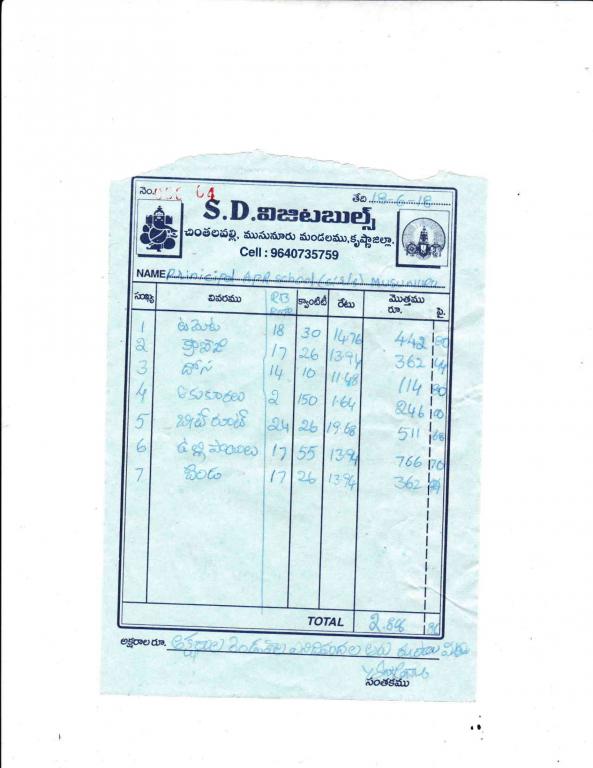 నెం. 64
తేది 18-6-18
S.D. విజిటబుల్స్
చింతలవల్లి, ముసునూరు మండలము, కృష్ణాజిల్లా.
Cell : 9640735759
NAME Principal APR School (Girls) Musunuru
సంఖ్య వివరము క్వాంటిటీ రేటు మొత్తము రూ. పై.
1 టమోట 18 30 14.76 442 80
2 క్యాబేజి 17 26 13.94 362 44
3 దోస 14 10 11.48 114 80
4 ఆకుకూరలు 2 150 1.64 246 00
5 బీట్ రూట్ 24 26 19.68 511 68
6 ఉల్లిపాయలు 17 55 13.94 766 70
7 బెండ 17 26 13.94 362
TOTAL 2.806
అక్షరాల రూ.
సంతకము